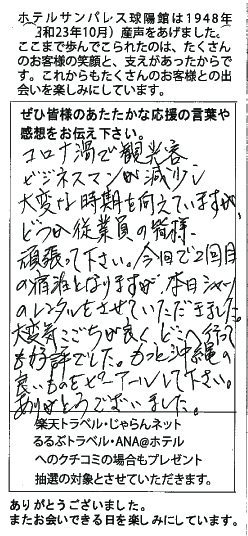 ホテルサンパレス球陽館は1948年
(昭和23年10月）産声をあげました。
ここまで歩んでこられたのは、たくさん
のお客様の笑顔と、支えがあったからで
す。これからもたくさんのお客様との出
会いを楽しみにしています。
ぜひ皆様のあたたかな応援の言葉や
感想をお伝え下さい。
コロナ渦で観光客
ビジネスマンが減少し
大変な時期を向えていますが、
どうか従業員の皆様、
頑張って下さい。今回で2回目
の宿泊となりますが、本日シャツ
のレンタルをさせていただきました。
大変着ごごちが良く、どこへ行って
も好評でした。もっと沖縄の
良いものをピーアールして下さい。
ありがとうございました。
楽天トラベル・じゃらんネット
るるぶトラベル・ANA@ホテル
へのクチコミの場合もプレゼント
抽選の対象とさせていただきます。
ありがとうございました。
またお会いできる日を楽しみにしています。